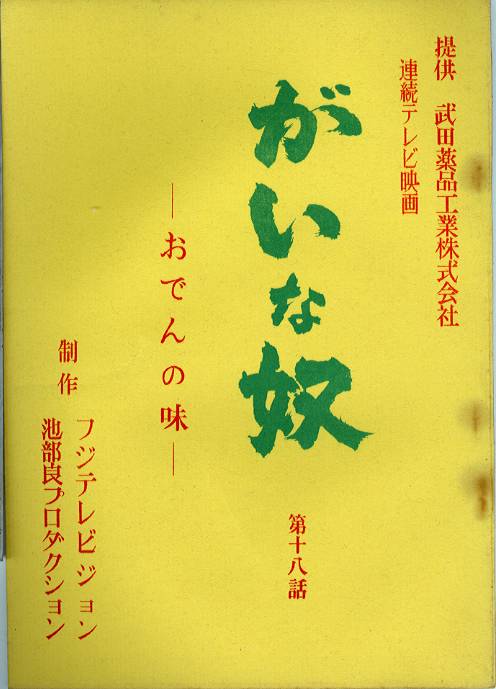 提供　武田薬品工業株式会社
連続テレビ映画
がいな奴
第十八話
―おでんの味―
制作　フジテレビジョン
池部良プロダクション